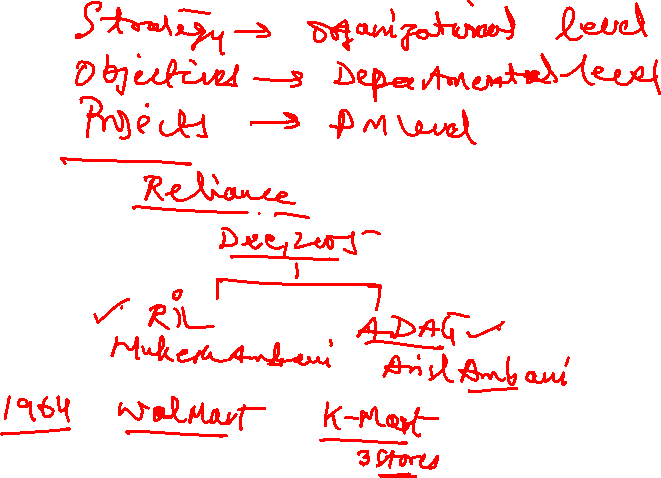 Strategy → organizational level
Objectives → Departmental level
Projects → PM level
Reliance
Dec, 2005
✓ RIL ADAG ✓
Mukesh Ambani Anil Ambani
1964 Walmart K-Mart
3 Stores